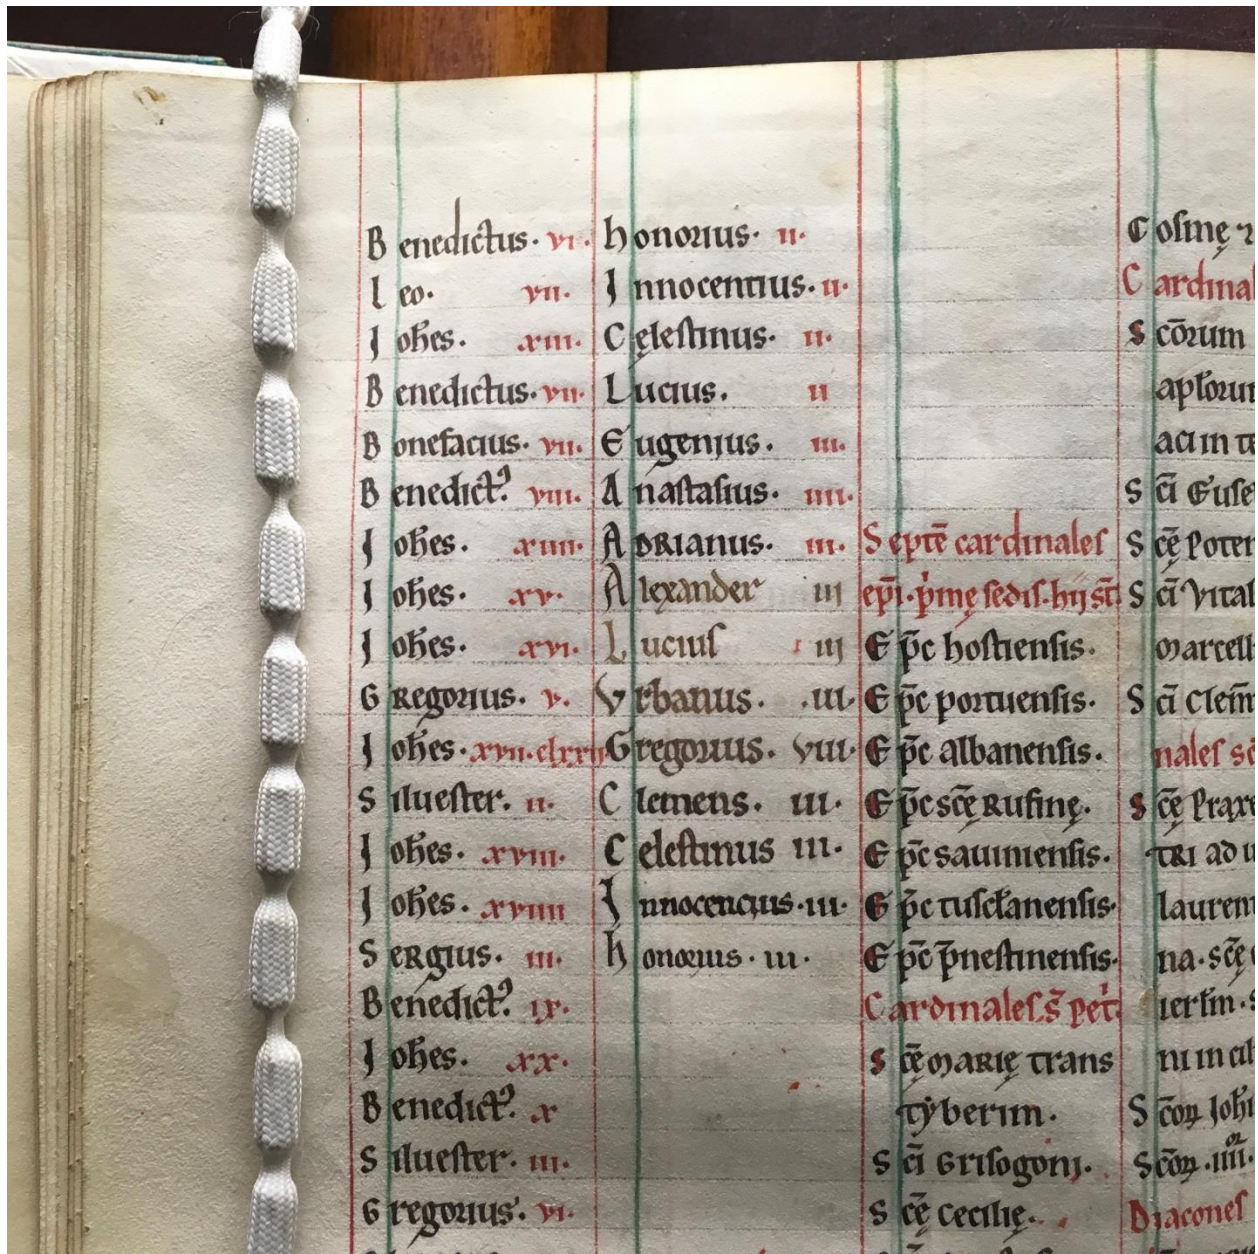 Benedictus. vi.
Leo. vii.
Iohes. xiii.
Benedictus. vii.
Bonefacius. vii.
Benedict᾽. viii.
Iohes. xiiii.
Iohes. xv.
Iohes. xvi.
Gregorius. v.
Iohes. xvii.
Siluester. ii.
Iohes. xviii.
Iohes. xviiii
Sergius. iii.
Benedict᾽. ix.
Iohes. xx.
Benedict᾽. x
Siluester. iii.
Gregorius. vi.
honorius. ii.
Innocentius. ii.
Cęlestinus. ii.
Lucius. ii
Eugenius. iii.
Anastasius. iiii.
Adrianus. iii.
Alexander iii
Lucius iii
Vrbanus. .iii.
Gregorius. viii.
Clemens. iii.
Celestinus iii.
Innocencius. iii.
honorius. iii.
Septē cardinales
ep̄i. p᾽mę sedis. hij st̄
Ep̄c hostiensis.
Ep̄c portuensis.
Ep̄c albanensis.
Ep̄c scę̄ Rufinę.
Ep̄c sauiniensis.
Ep̄c tusclanensis.
Ep̄c p̄nestinensis.
Cardinales. s̄ pet᾽
Scę̄ marię trans
tyberim.
Sc̄i Grisogoni.
Scę̄ cecilię.
Cosmę ⁊
Cardinal
Scōrum
aplorum
Sc̄i Euse
Scę̄ Poten
Sc̄i Vital
marcell
Sc̄i Clem̄
nales sc̄
Scę̄ Praxe
tri ad u
lauren
na. scę̄
ierlm. s
Scoꝝ Iohi
Scoꝝ .iiii.
Diacones